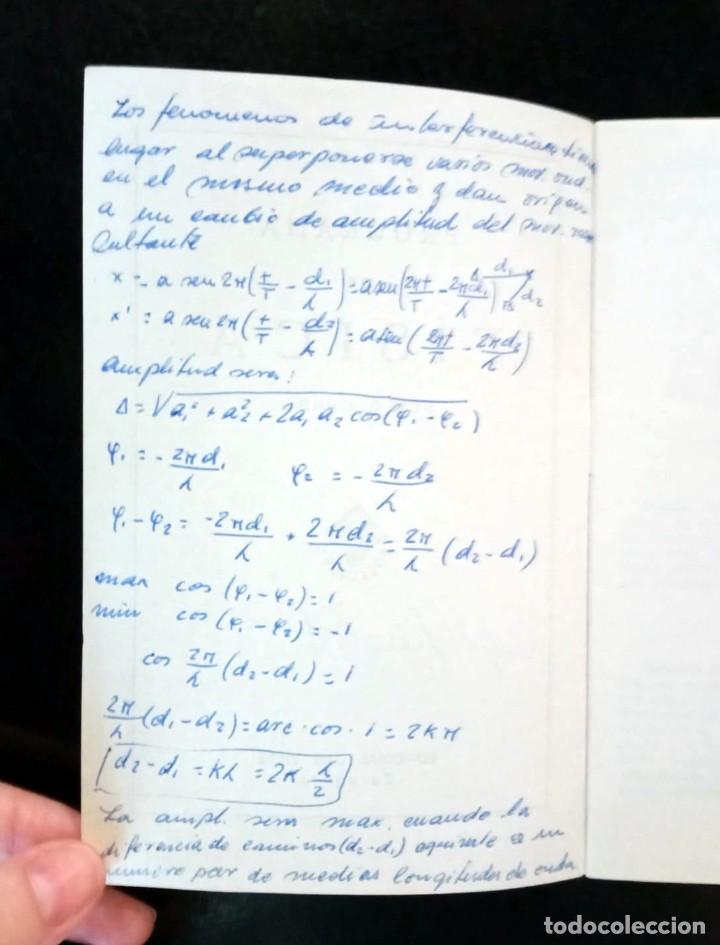 Los fenomenos de interferencias tienen
lugar al superponerse varios mov. ond.
en el mismo medio y dan origen
a un cambio de amplitud del mov. re
sultante
x = a sen 2π(t/T - d₁/λ) = a sen(2πt/T - 2πd₁/λ) A d₁ B d₂
x' = a sen 2π(t/T - d₂/λ) = a sen(2πt/T - 2πd₂/λ)
amplitud sera:
A = √a₁² + a₂² + 2a₁ a₂ cos(φ₁ - φ₂)
φ₁ = - 2πd₁/λ φ₂ = - 2πd₂/λ
φ₁ - φ₂ = -2πd₁/λ + 2πd₂/λ = 2π/λ (d₂ - d₁)
max cos (φ₁ - φ₂) = 1
min cos (φ₁ - φ₂) = -1
cos 2π/λ (d₂ - d₁) = 1
2π/λ (d₁ - d₂) = arc · cos · 1 = 2Kπ
d₂ - d₁ = Kλ = 2K λ/2
La ampl. sera max. cuando la
diferencia de caminos (d₂ - d₁) equivale a un
numero par de medias longitudes de onda
todocoleccion